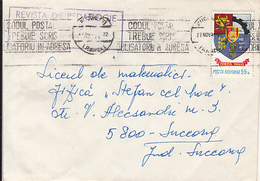 REVISTA DE
CODUL POSTAL
TREBUIE SCRIS
OBLIGATORIU IN ADRESA
CODUL POSTAL
TREBUIE SCRIS
OBLIGATORIU IN ADRESA
POSTA ROMANA 55 b
Liceul de matematică-
fizică "Ștefan cel Mare"
str. V. Alecsandri nr. 3
5800 - Suceava
Jud. Suceava